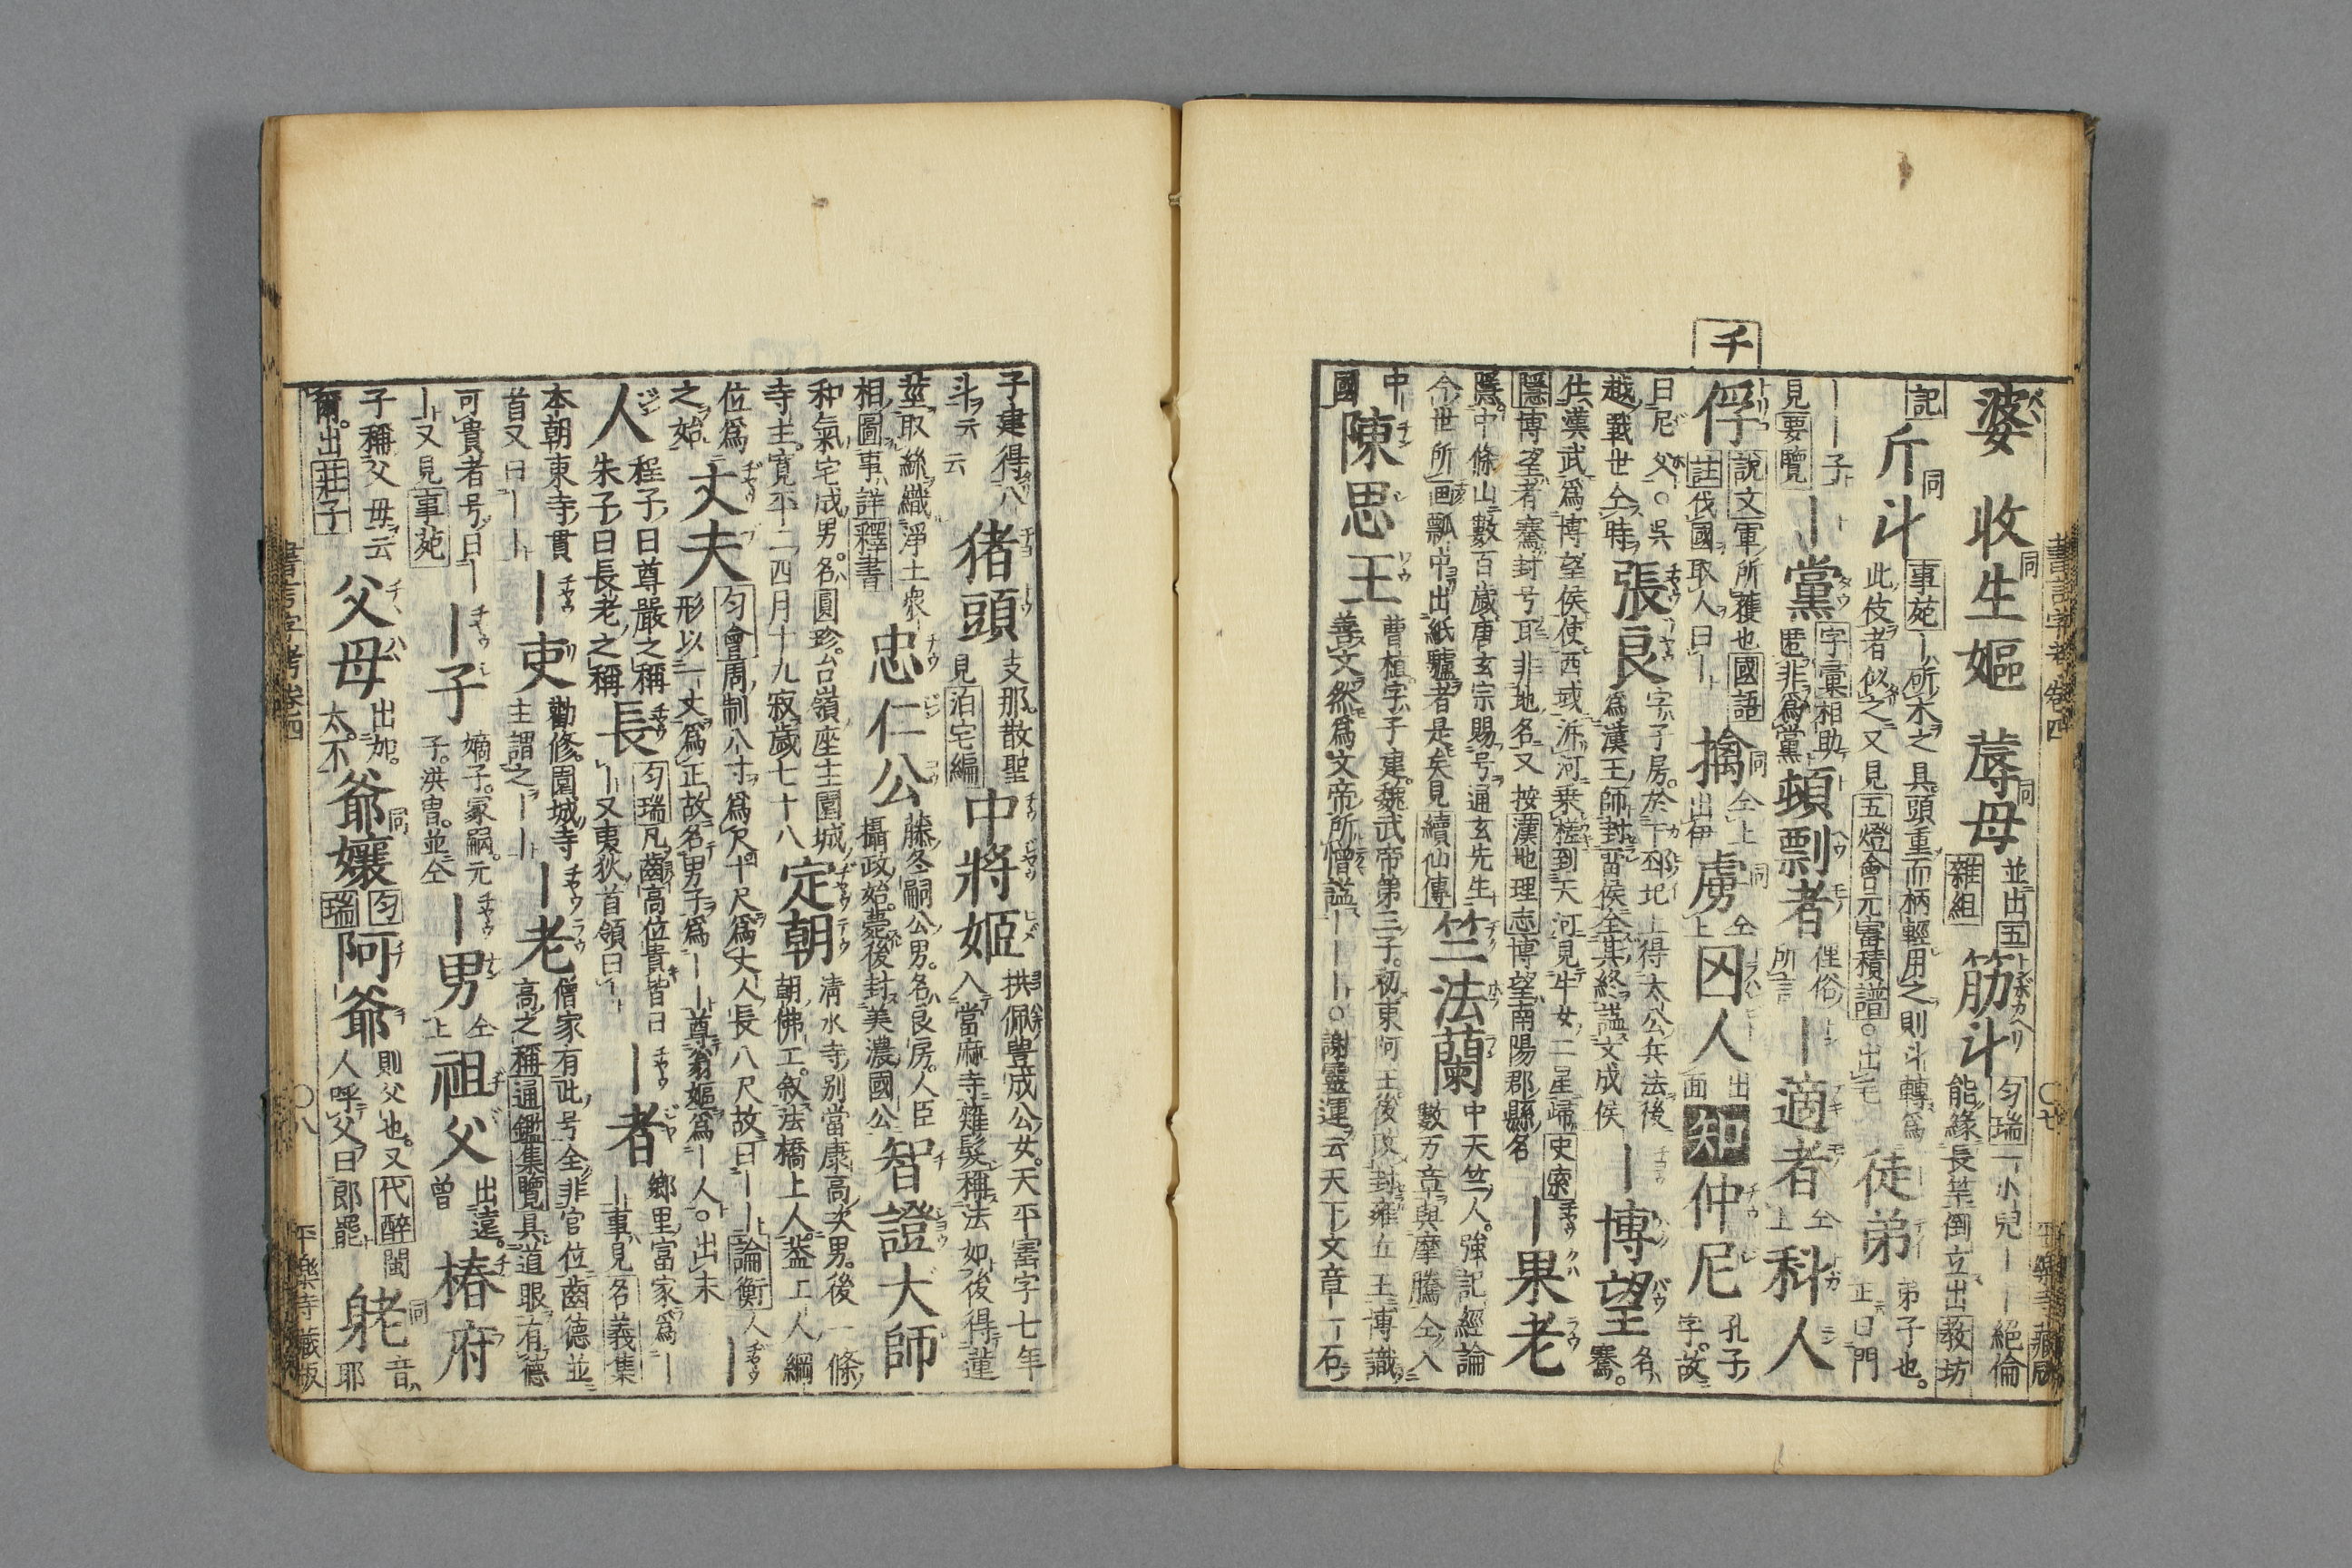 チ
婆 収生嫗 蓐母 並出五雜組 筋斗 匀瑞一小兒一一絶倫能縁長竿倒立出教坊
記 斤斗 事苑一所木之具頭重而柄輕用之則斗轉爲此伎者似之又見五燈會元審積譜○出 徒弟 弟子也。正曰門
一一子見要覽 一黨 字彙相助匿非爲黨 頓剽者 俚俗所言 一適者 仝上 科人
俘 說文軍所獲也國語註伐國取人曰一 擒 仝上出伊 虜 仝上 囚人 出面 知 仲尼 孔子字。故
曰尼父○吳越戰世仝時 張良 字子房。於下邳圯上得太公兵法後爲漢王師封留侯全其終謚文成侯 一博望 名騫。
仕漢武爲博望侯使西域泝河乗槎到天河見牛女二星歸史索隱博望者騫封号耳非地名又按漢地理志博望南陽郡縣名 一果老
隱中條山數百歲唐玄宗賜号通玄先生今世所画瓢中出紙驢者是矣見續仙傳 竺法蘭 中天竺人。強記經論數万章與摩騰仝入
中國 陳思王 曹植字子建。魏武帝第三子。初東阿王。後改封雍丘王博識善文然爲文帝所憎謚一一一○謝靈運云天下文章一石
子建得八斗云云 猪頭 支那散聖見泊宅編 中將姫 拱佩豊成公女。天平寶字七年入當麻寺薙髮稱法如後得蓮
莖取絲織淨土衆相圖事詳釋書 忠仁公 藤冬嗣公男。名良房。人臣攝政始。薨後封美濃國公 智證大師
和氣宅成男。名圓珍。台嶺座主園城寺主。寛平二四月十九寂歲七十八 定朝 淸水寺別當康高次男。後一條朝佛工。叙法橋上人。葢工人綱
位爲之始 丈夫 匀會周制八寸爲尺十尺爲丈人長八尺故曰一一論衡人形以一丈爲正故名男子爲一一尊翁嫗爲一人○出未 一
人 程子曰尊嚴之稱朱子曰長老之稱 長 匀瑞凡齒高位貴皆曰一又夷狄首領曰一 一者 鄉里富家爲一一事見名義集
本朝東寺貫首又曰一一 一吏 勸修園城寺主謂之一一 一老 僧家有此号全非官位齒德並高之稱通鑑集覽具道眼有德
可貴者号曰一一又見事苑 一子 嫡子。家嗣。元子。洪胄。並仝 一男 仝上 祖父 出遠。曾 椿府
子稱父母云爾。出莊子 父母 出加。太不 爺孃 匀瑞 阿爺 則父也。又代醉閩人呼父曰郎罷 䠵 音耶
書言字考卷四
平樂寺藏版